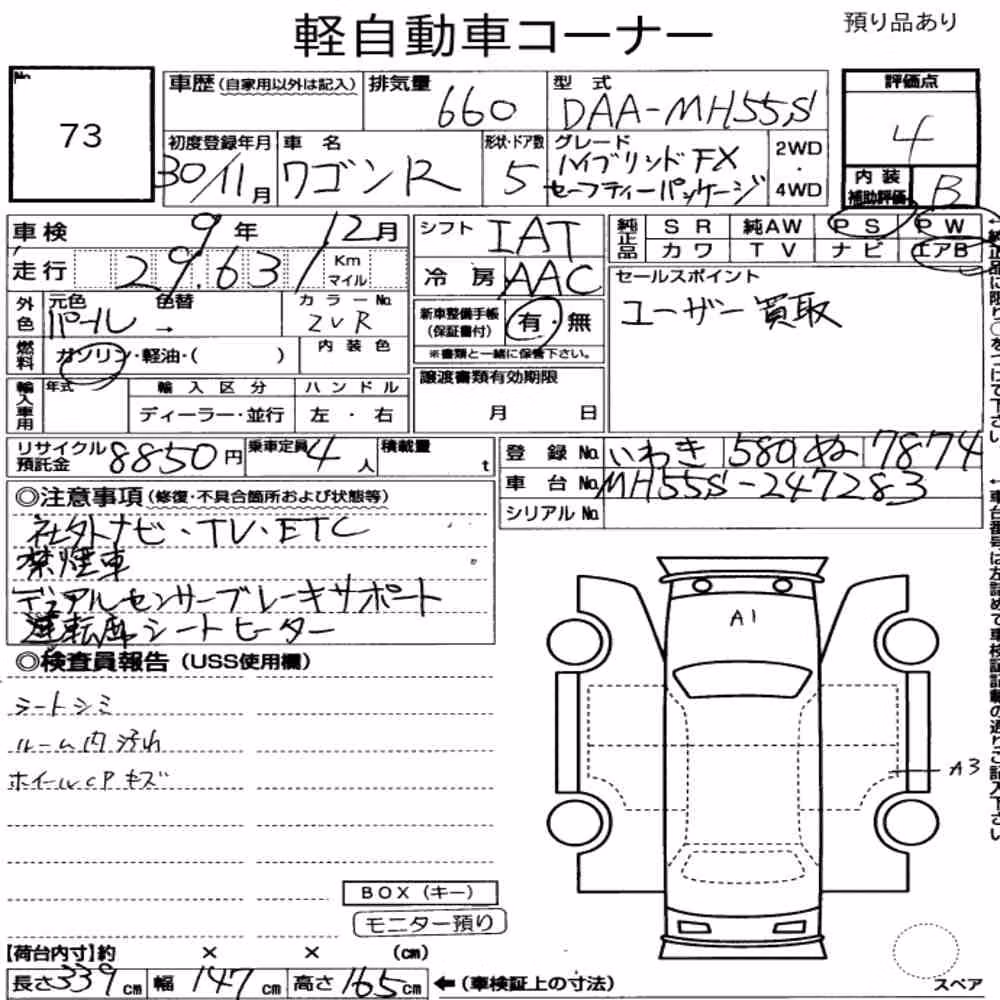 軽自動車コーナー
預り品あり
No.
73
車歴(自家用以外は記入)
排気量 660
型式 DAA-MH55S
評価点 4
初度登録年月 30/11月
車名 ワゴンR
形状・ドア数 5
グレード ハイブリッドFX
セーフティーパッケージ
2WD・4WD
内装補助評価 B
車検 9年 12月
シフト IAT
純正品 SR 純AW PS PW
カワ TV ナビ エアB
走行 29,631 Km マイル
冷房 AAC
セールスポイント
ユーザー買取
外色 元色 パール → 色替 カラーNo. ZVR
新車整備手帳(保証書付) 有・無
※書類と一緒に保管下さい。
燃料 ガソリン・軽油・( )
内装色
譲渡書類有効期限
月 日
輸入車用 年式 輸入区分 ハンドル
ディーラー・並行 左・右
リサイクル預託金 8850円
乗車定員 4人
積載量 t
登録No. いわき 580 ぬ 7874
車台No. MH55S-247283
シリアルNo.
◎注意事項(修復・不具合箇所および状態等)
社外ナビ・TV・ETC
禁煙車
デュアルセンサーブレーキサポート
運転席シートヒーター
◎検査員報告(USS使用欄)
シートシミ
ルーム内汚れ
ホイールCPキズ
A1
A3
BOX(キー)
モニター預り
【荷台内寸】約 × × (cm)
長さ339cm 幅147cm 高さ165cm
←(車検証上の寸法)
スペア
←純正品に限り○をつけて下さい。
←車台番号は左詰めで車検証記載の通りご記入下さい。